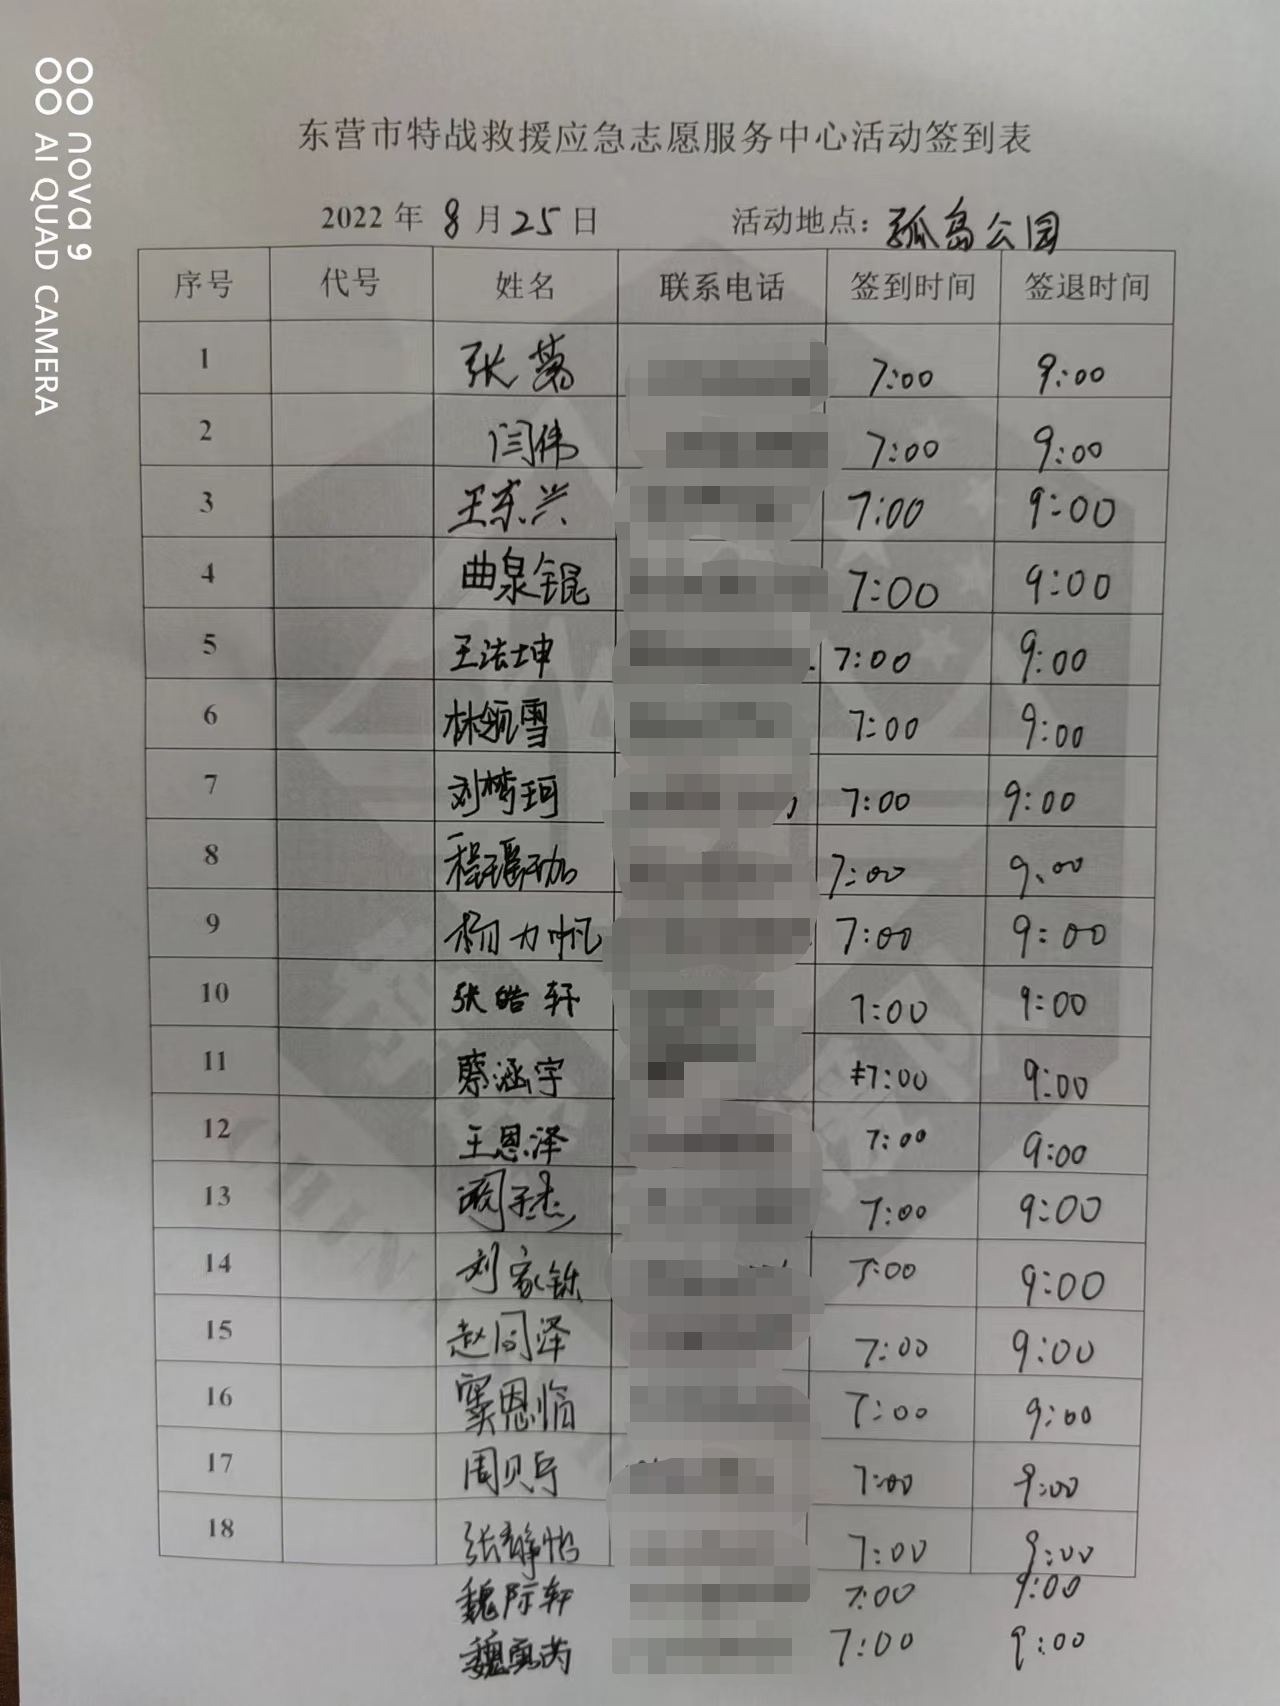 nova 9
AI QUAD CAMERA
东营市特战救援应急志愿服务中心活动签到表
2022 年 8 月 25 日 活动地点：孤岛公园
序号 代号 姓名 联系电话 签到时间 签退时间
1 张蕾 7:00 9:00
2 闫伟 7:00 9:00
3 王东兴 7:00 9:00
4 曲泉锟 7:00 9:00
5 王法坤 7:00 9:00
6 林航雪 7:00 9:00
7 刘梦珂 7:00 9:00
8 程瑶珈 7:00 9:00
9 杨力帆 7:00 9:00
10 张皓轩 7:00 9:00
11 蔡涵宇 7:00 9:00
12 王恩泽 7:00 9:00
13 7:00 9:00
14 刘家铄 7:00 9:00
15 赵同泽 7:00 9:00
16 窦恩临 7:00 9:00
17 周贝兵 7:00 9:00
18 张静怡 7:00 9:00
魏际轩 7:00 9:00
7:00 9:00